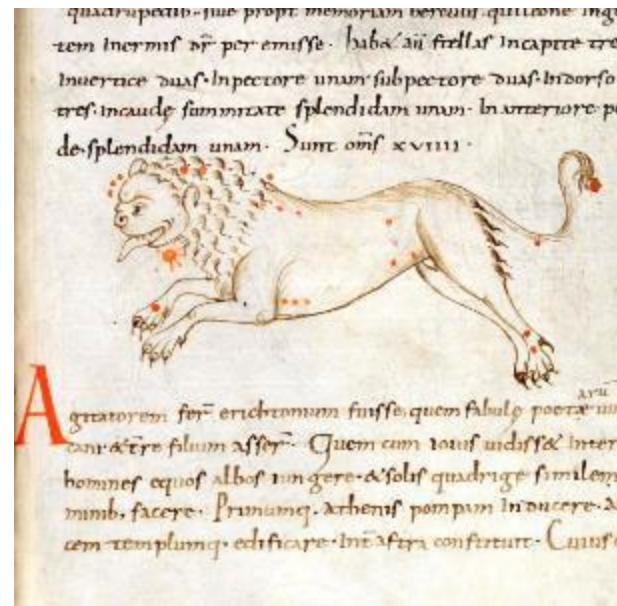 quadrupedib; sive propt memoriam herculis. quileone ing
tem Inermis dr̄ per emisse. habet aū stellas Incapite tre
Invertice duas. Inpectore unam subpectore duas. Indorso
tres. Incaudę summitate splendidam unam. In anteriore pe
de. splendidam unam. Sunt om̄s xviiii.
Agitatorem fer̄ erichtonium fuisse, quem fabulę poetæ
&tr̄e filium asser̄. Quem cum iovis vidiss& Inter
homines equos albos iungere. & solis quadrigę similem
minib; facere. Primumq. athenis pompam Inducere. A
cem templumq. edificare. Int̄ astra constituit. Cuius